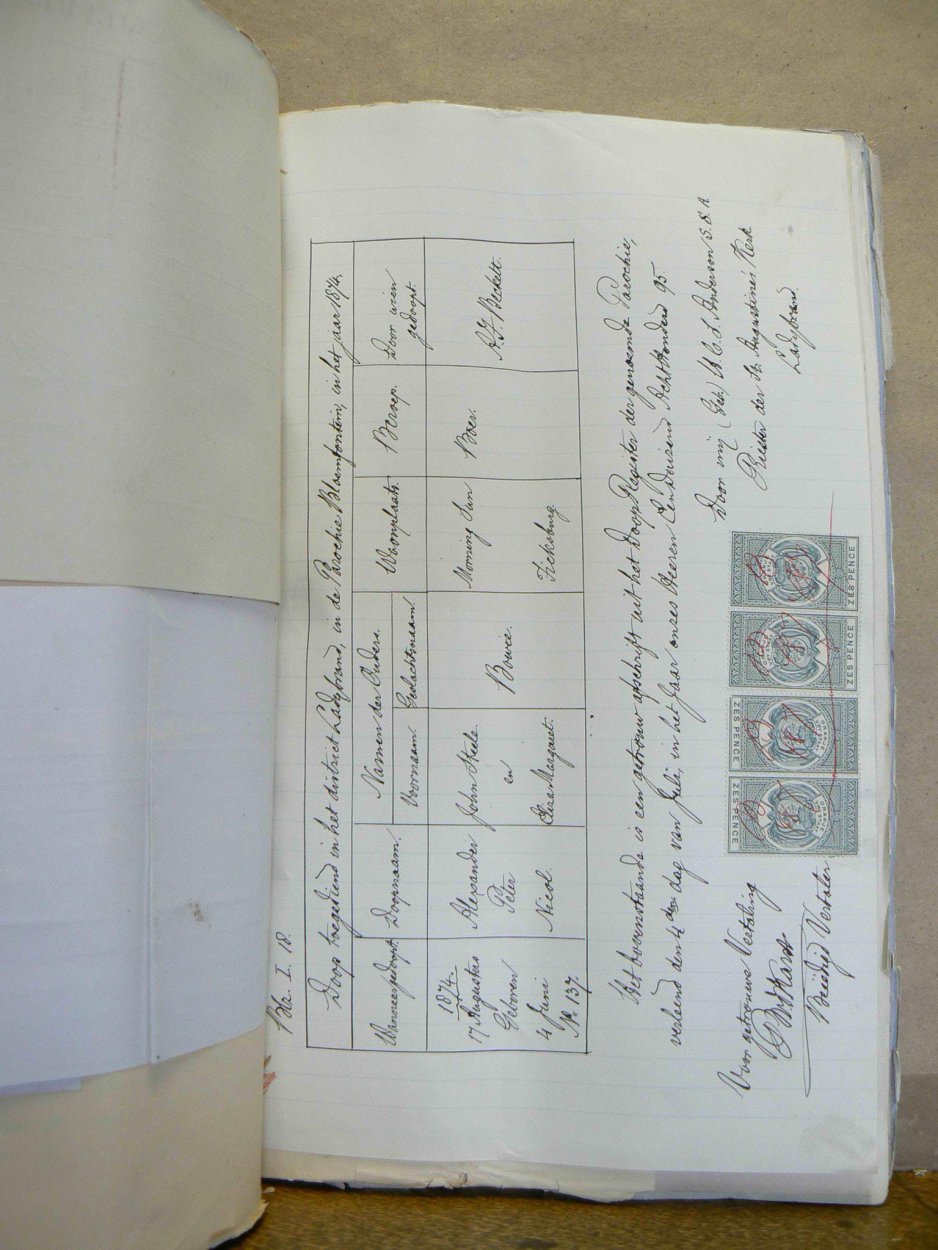 Blz. I. 18.
Doop toegediend in het district Ladybrand, in de Parochie Bloemfontein, in het jaar 1874.
Wanneer gedoopt. Doopnaam. Namen der Ouders. Woonplaats. Beroep. Door wien gedoopt.
Voornaam. Geslachtsnaam.
1874.
17 Augustus
Geboren
4 Juni
No. 137.
Alexander
Peter
Nicol.
John Steele
en
Eliza Margaret.
Bowie.
Morning Sun
Ficksburg
Boer.
A.J. Beckett.
Het bovenstaande is een getrouw afschrift uit het Doop Register der genoemde Parochie,
verleend den 4den dag van Juli, in het Jaar onzes Heeren Eenduizend Achthonderd 95
Door mij (Get) W. C. L. Anderson S.S.A.
Priester der St. Augustine's Kerk
Ladybrand.
Voor getrouwe Vertaling
Beëedigd Vertaler.
ZES PENCE
ZES PENCE
ZES PENCE
ZES PENCE